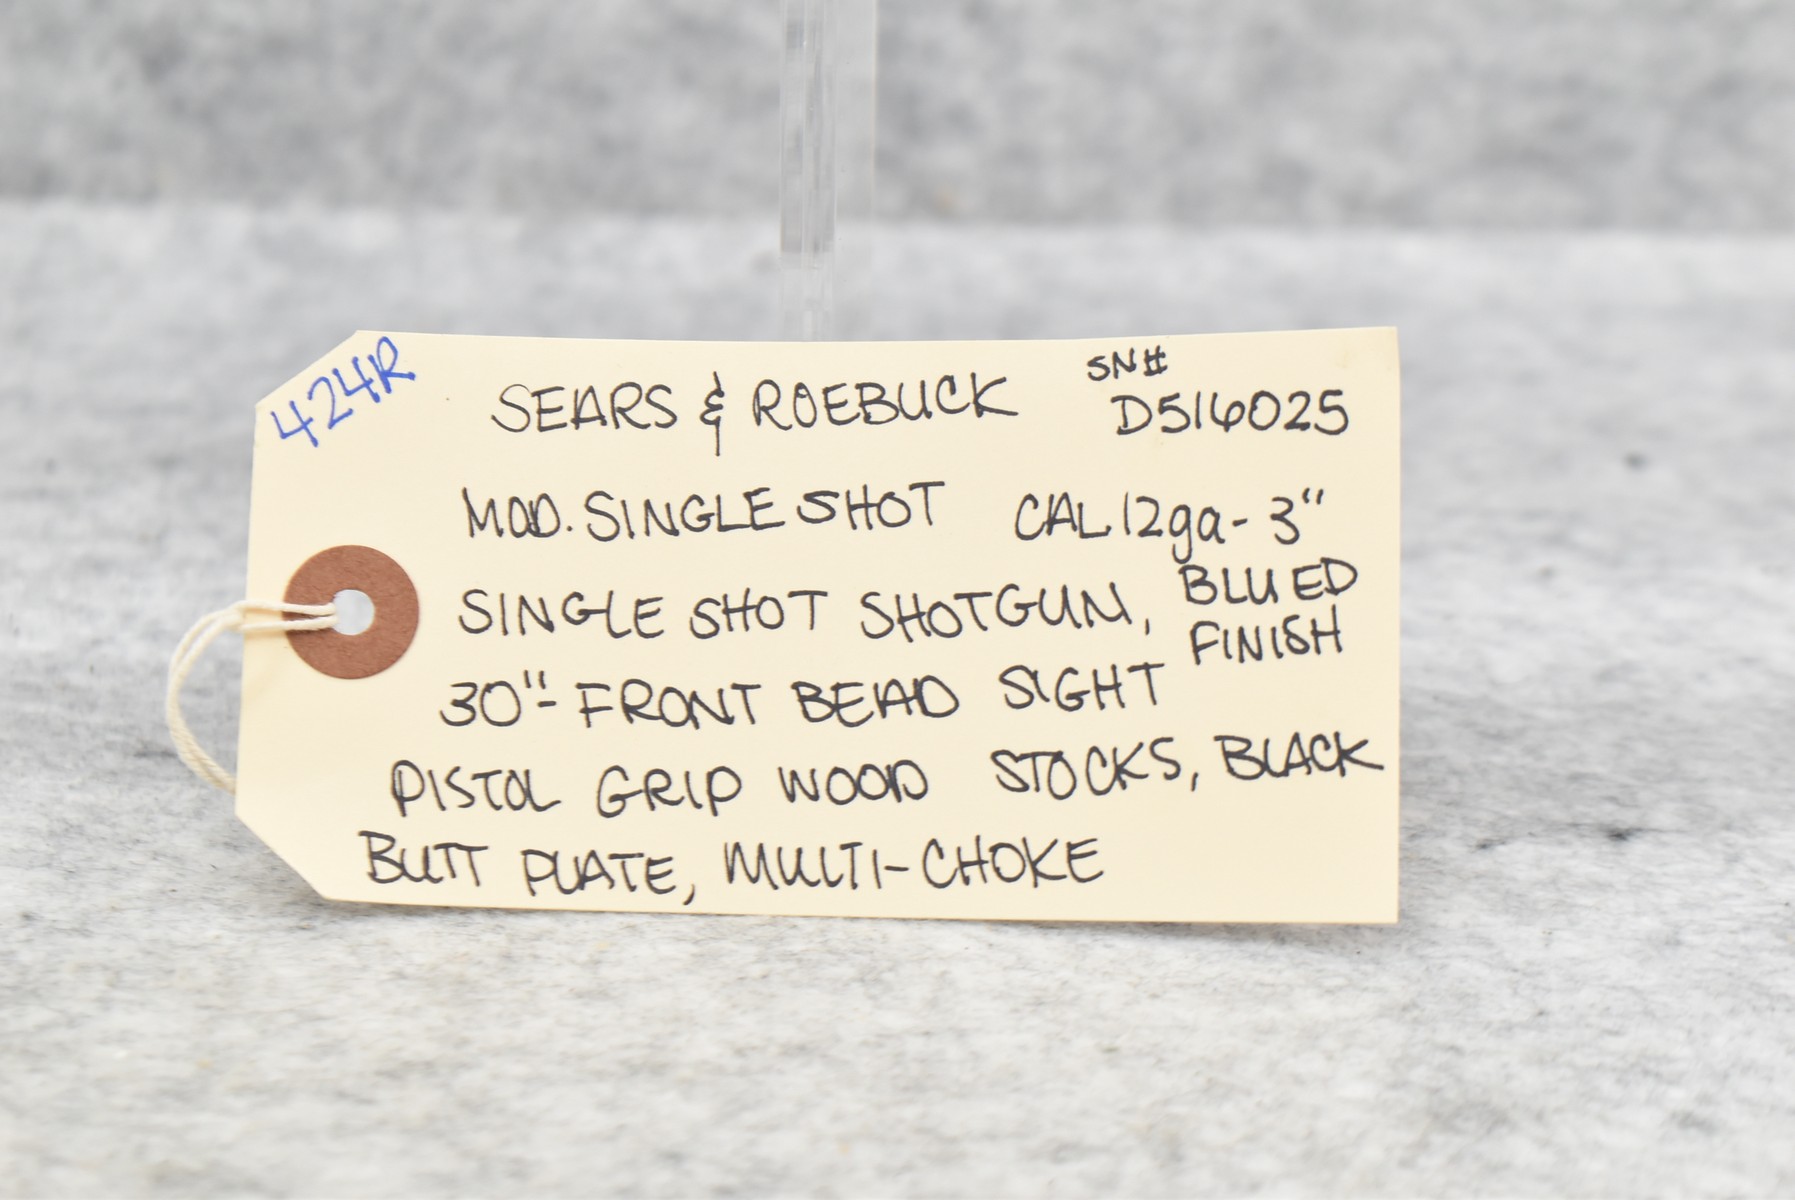 424R
SEARS & ROEBUCK SN# D516025
MOD. SINGLE SHOT CAL 12ga - 3"
SINGLE SHOT SHOTGUN, BLUED FINISH
30"- FRONT BEAD SIGHT
PISTOL GRIP WOOD STOCKS, BLACK
BUTT PLATE, MULTI-CHOKE